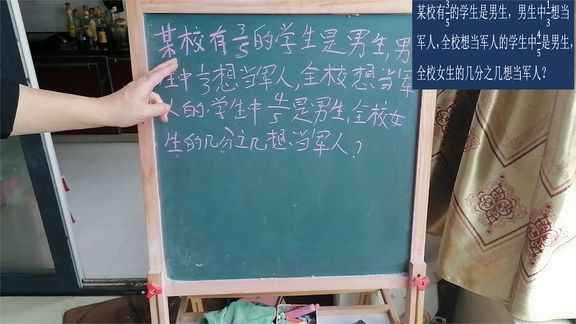 某校有3/5的学生是男生,男生中1/3想当
军人,全校想当军人的学生中4/5是男生,
全校女生的几分之几想当军人?
某校有3/5的学生是男生,男
生中1/3想当军人,全校想当军
人的学生中4/5是男生,全校女
生的几分之几想当军人?